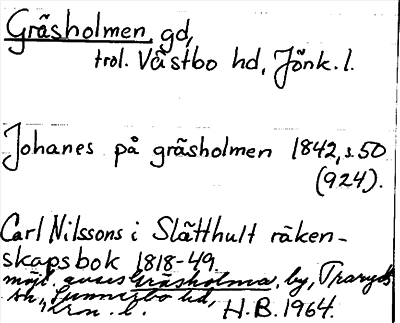 Gräsholmen, gd,
trol. Västbo hd, Jönk. l.
Johanes på gräsholmen 1842, s. 50
(924).
Carl Nilssons i Slätthult räken-
skapsbok 1818-49.
möjl. avses Gräsholma, by, Traryds
sn, Sunnerbo hd,
Kron. l. H.B. 1964.